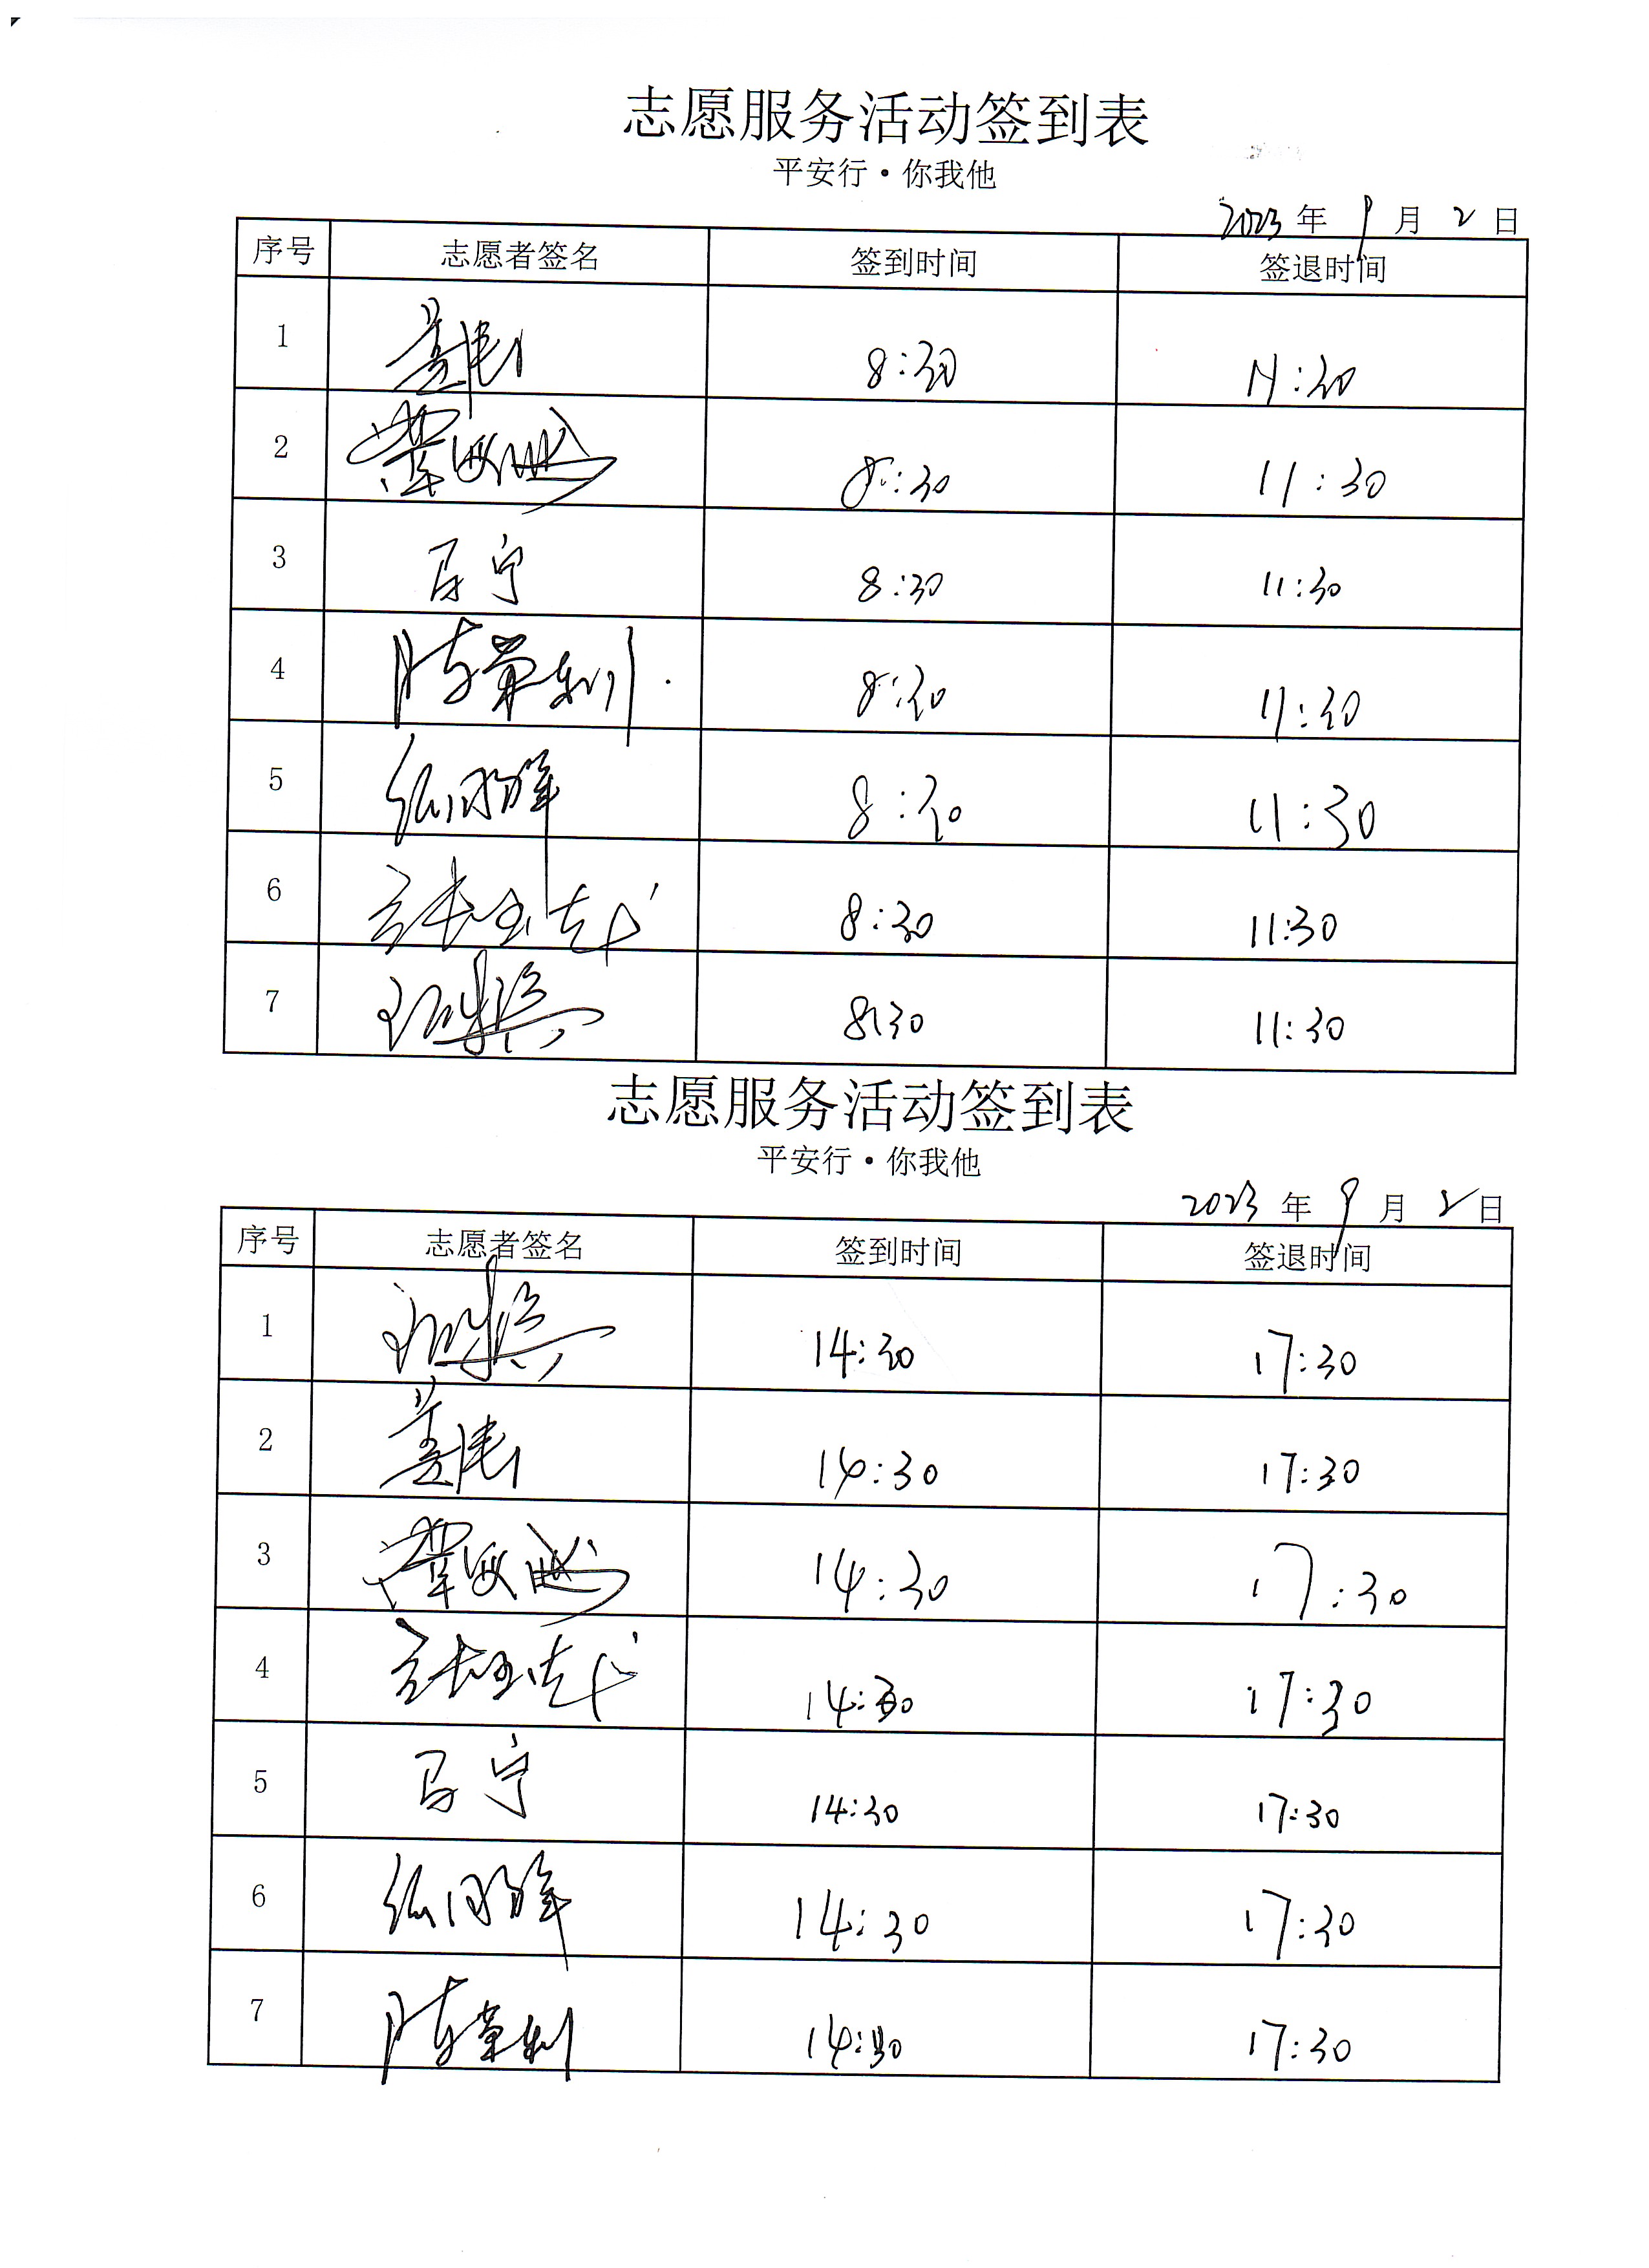 志愿服务活动签到表
平安行·你我他
2023 年 9 月 2 日
序号 志愿者签名 签到时间 签退时间
1 8:30 11:30
2 8:30 11:30
3 马宁 8:30 11:30
4 陈荣利 8:30 11:30
5 8:30 11:30
6 8:30 11:30
7 8:30 11:30
志愿服务活动签到表
平安行·你我他
2023 年 9 月 2 日
序号 志愿者签名 签到时间 签退时间
1 14:30 17:30
2 14:30 17:30
3 14:30 17:30
4 14:30 17:30
5 马宁 14:30 17:30
6 14:30 17:30
7 陈荣利 14:30 17:30